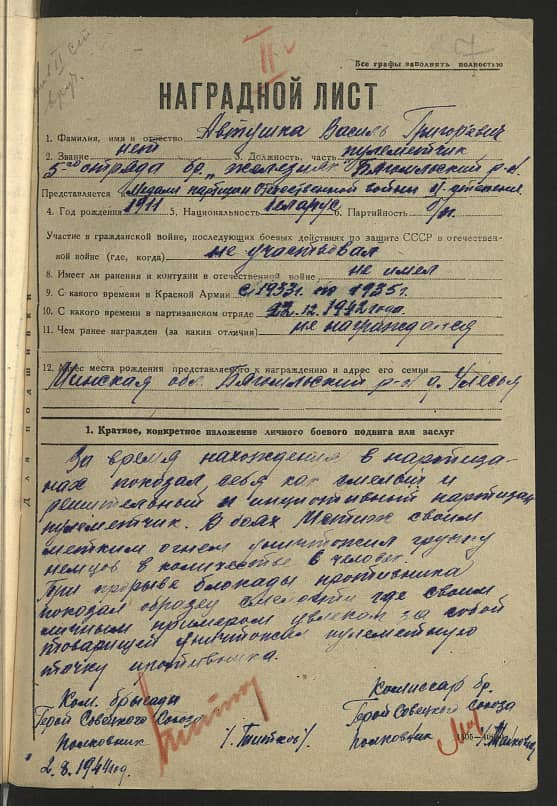 II
7
Все графы заполнять полностью
НАГРАДНОЙ ЛИСТ
1. Фамилия, имя и отчество Автушка Василь Григоревич
2. Звание нет 3. Должность, часть пулеметчик
5-го отряда бр. „Железняк" Бягомльский р-н
Представляется к Медали партизан Отечественной войны II степени
4. Год рождения 1911 5. Национальность беларус 6. Партийность б/п.
Участие в гражданской войне, последующих боевых действиях по защите СССР в отечествен-
ной войне (где, когда) не участвовал
8. Имеет ли ранения и контузии в отечественной войне не имел
9. С какого времени в Красной Армии с 1933г. по 1935г.
10. С какого времени в партизанском отряде 22.12.1942 года.
11. Чем ранее награжден (за какие отличия) не награждался
12. Адрес места рождения представляемого к награждению и адрес его семьи
Минская обл. Бягомльский р-н д. Улесье
Для подшивки
1. Краткое, конкретное изложение личного боевого подвига или заслуг
За время нахождения в партиза-
нах показал себя как смелый и
решительный и инциотивный партизан
пулеметчик. В боях Мстиж своим
метким огнем уничтожил группу
немцев в количестве 6 человек.
При прорыве блокады противника
показал образец смелости где своим
личным примером увлекал за собой
товарищей уничтожил пулеметную
точку противника.
Ком. бригады
Герой Советского Союза
полковник /. Титков/.
2.8.1944год.
Комиссар бр.
Герой Совецкого союза
полковник